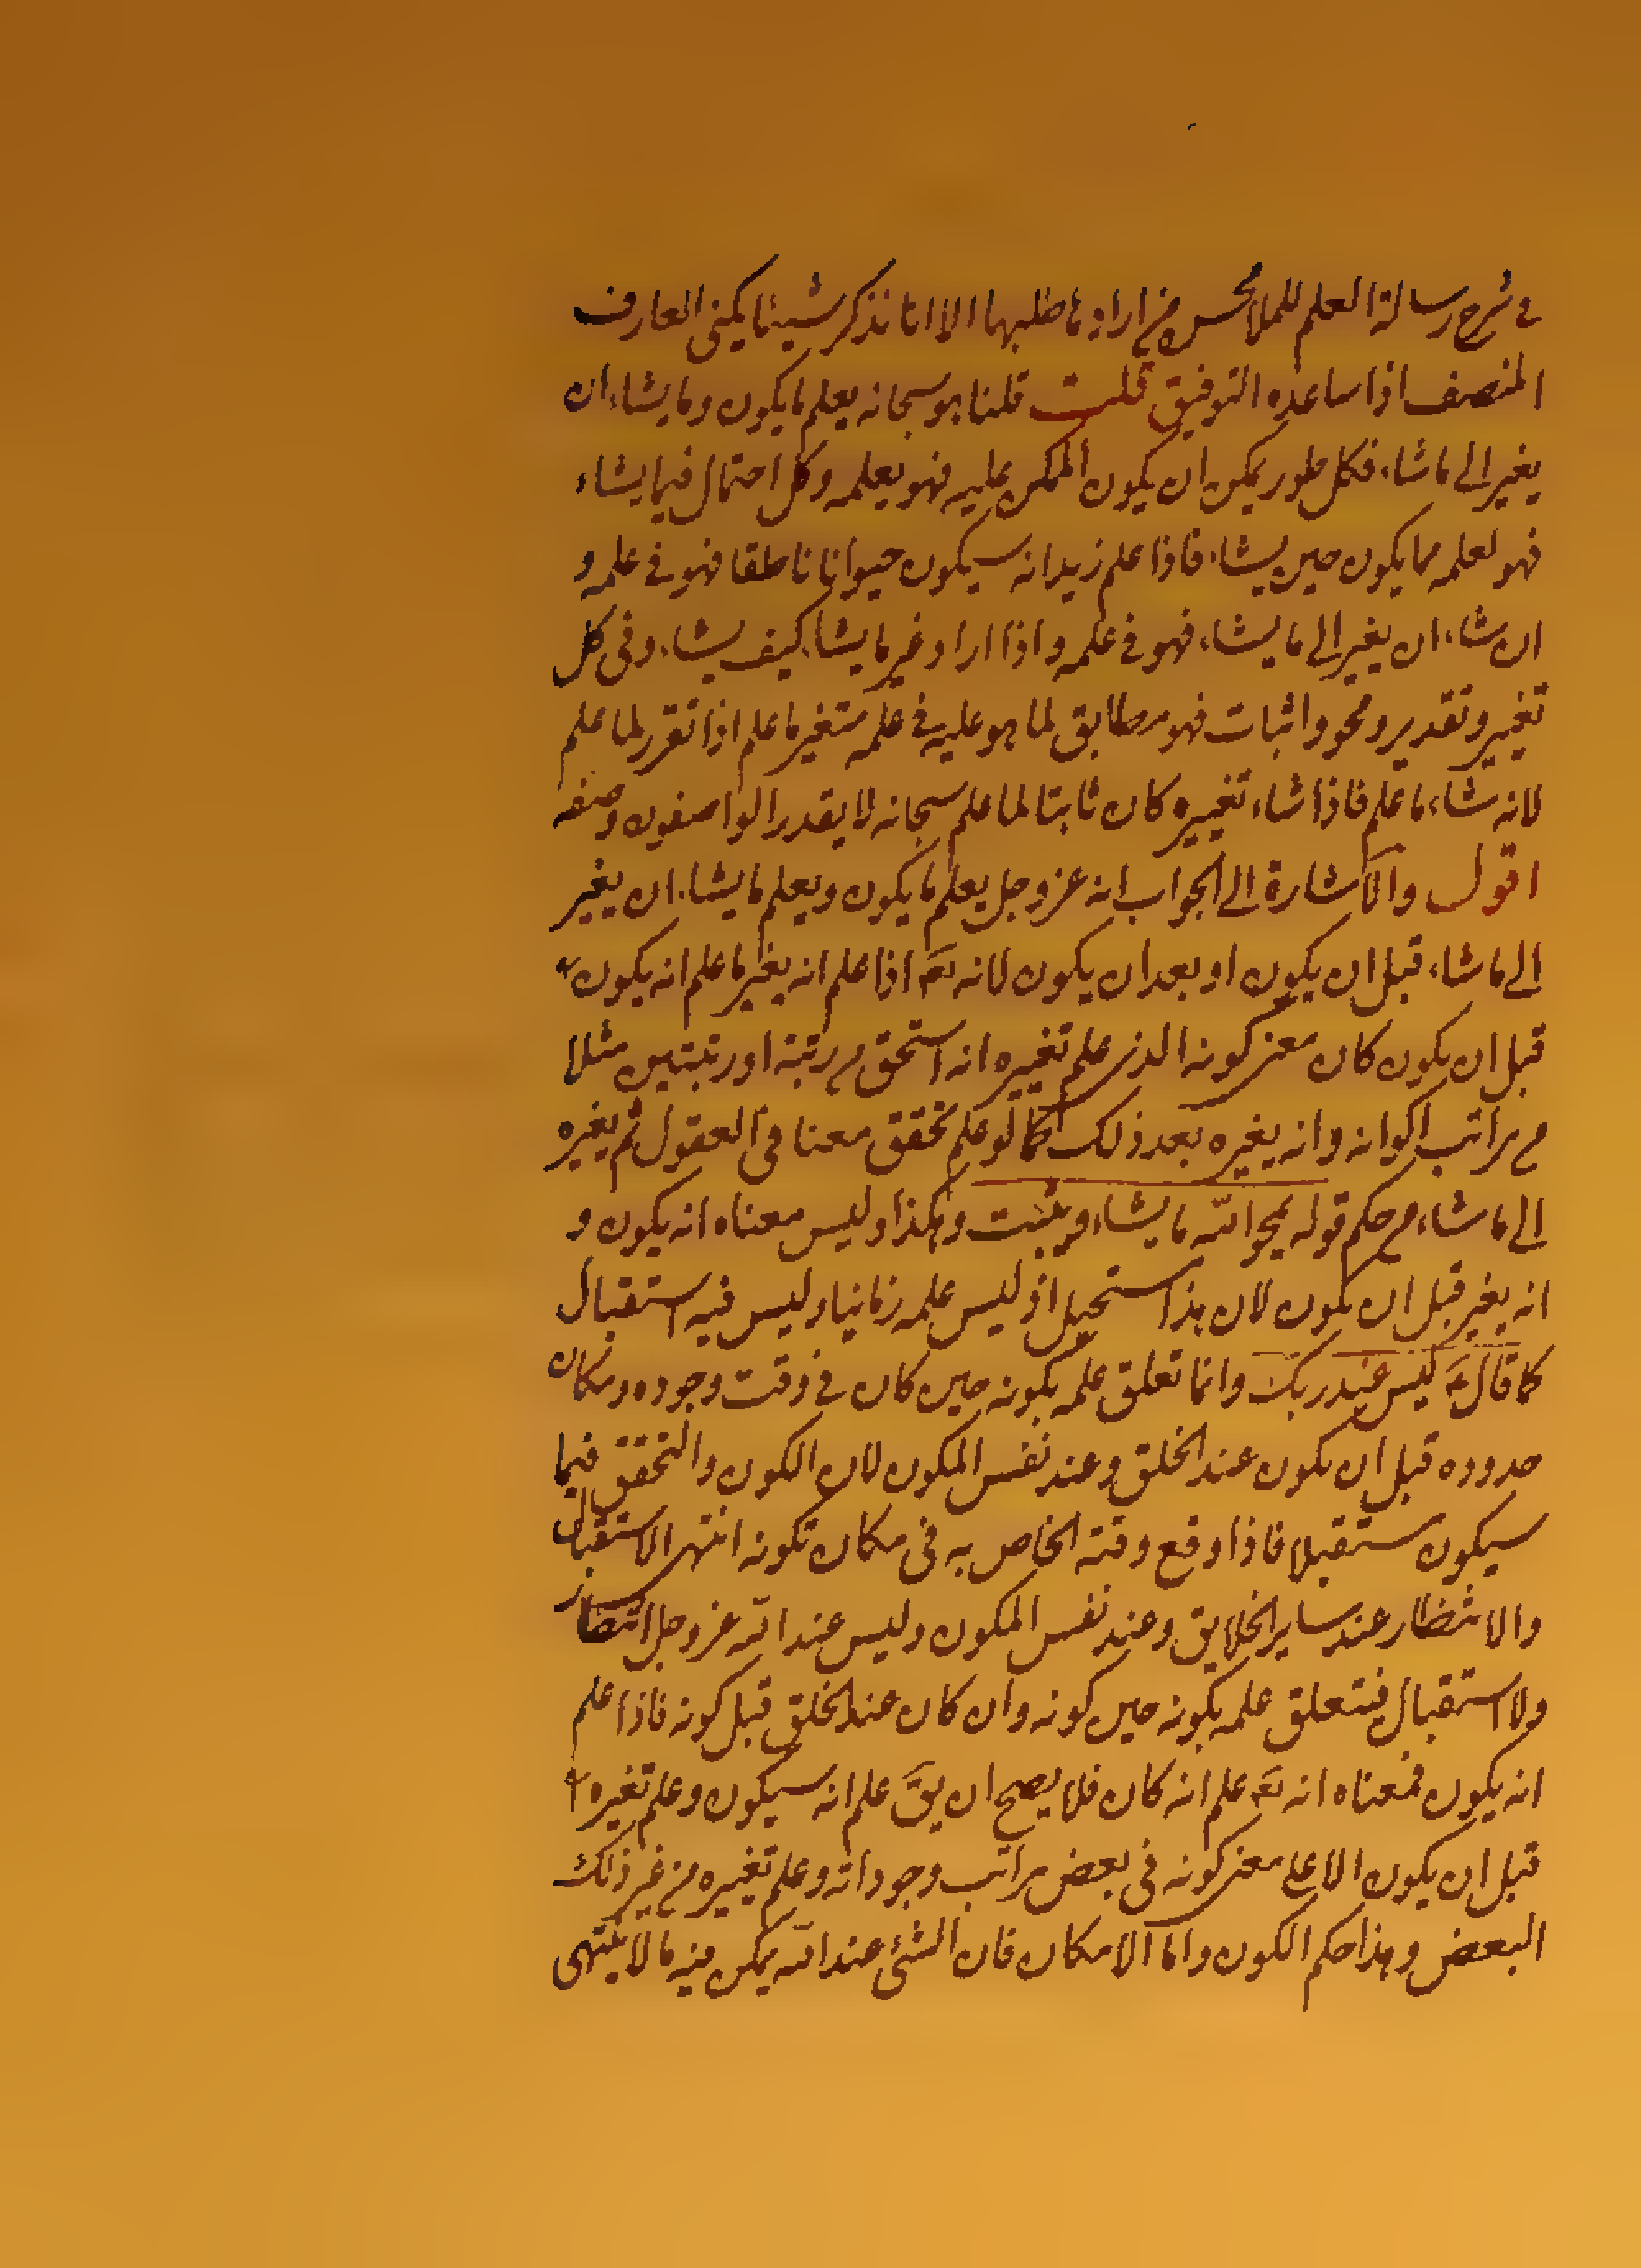 في شرح رسالة العلم للملا محسن من اراد ما طلبها الا انا نذكر شيئا يكفي العارف
المنصف اذا ساعده التوفيق قلت قلنا هو سبحانه يعلم ما يكون وما يشاء ان
يغير الى ما شاء فكل طور يمكن ان يكون الممكن عليه فهو يعلمه وكل احتمال فيما يشاء
فهو لعلمه مما يكون حين يشاء فاذا علم زيدا انه سيكون حيوانا ناطقا فهو في علمه و
ان شاء ان يغير الى ما يشاء فهو في علمه واذا اراد غير ما يشاء كيف يشاء وفي كل
تغيير وتقدير ومحو واثبات فهو مطابق لما هو عليه في علمه متغير ما علم اذا تقرر لما علم
لانه شاء ما علم فاذا شاء تغييره كان ثابتا لما علم سبحانه لا يقدر الواصفون وصفه
اقول والاشارة الى الجواب انه عز وجل يعلم ما يكون ويعلم ما يشاء ان يغير
الى ما شاء قبل ان يكون او بعد ان يكون لانه تع اذا علم انه يغير ما علم انه يكون
قبل ان يكون كان معنى كونه الذي علم تغييره انه استحق من رتبة او رتبتين مثلا
من مراتب اكوانه وانه يغيره بعد ذلك كما لو علم تحقق معنا في العقول ثم يغيره
الى ما شاء من حكم قوله يمحو الله ما يشاء ويثبت وهكذا وليس معناه انه يكون و
انه يغير قبل ان يكون لان هذا مستحيل اذ ليس علمه زمانيا وليس فيه استقبال
كما قال تع ليس عند ربك وانما تعلق علمه بكونه حين كان في وقت وجوده ومكان
حدوده قبل ان يكون عند الخلق وعند نفس المكون لان الكون والتحقق فيما
سيكون مستقبلا فاذا وقع وقته الخاص به في مكان تكونه انتهى الاستقبال
والانتظار عند ساير الخلايق وعند نفس المكون وليس عند الله عز وجل انتظار
ولا استقبال فيتعلق علمه بكونه حين كونه وان كان عند الخلق قبل كونه فاذا علم
انه يكون فمعناه انه تع علم انه كان فلا يصح ان يق علم انه سيكون وعلم تغيره
قبل ان يكون الا على معنى كونه في بعض مراتب وجوداته وعلم تغييره من غير ذلك
البعض وهذا حكم الكون واما الامكان فان الشئ عند الله يمكن فيه ما لا ينتهى